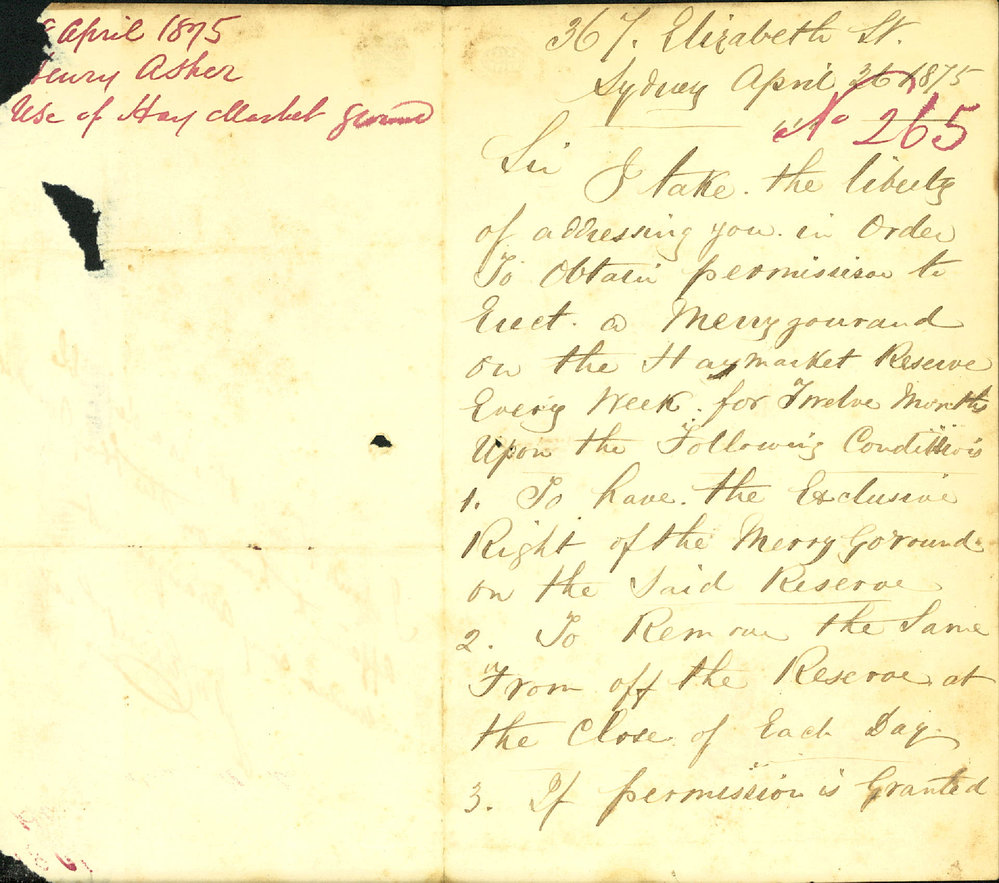 April 1875
Henry Asher
Use of Hay Market ground
367. Elizabeth St.
Sydney April 26 1875
No 265
Sir I take. the liberty
of addressing you. in Order
To Obtain permission to
Erect. a Merrygourand
on the Haymarket Reserve
Every Week. for Twelve Months
Upon the Following Conditions
1. To have. the Exclusive
Right of the Merry Goround
on the Said Reserve
2. To Remove the Same
From off the Reserve at
the Close. of Each Day.
3. If permission is Granted